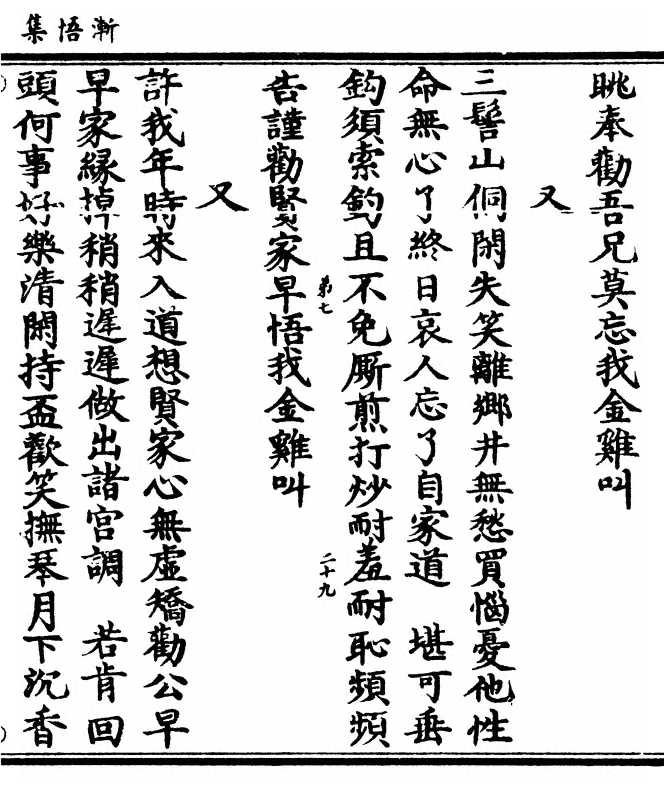 漸悟集
眺奉勸吾兄莫忘我金雞叫
又
三髻山侗閑失笑離鄉井無愁買惱憂他性
命無心了終日哀人忘了自家道　堪可垂
鈎須索釣且不免厮煎打炒耐羞耐恥頻頻
弟七
二十九
告謹勸賢家早悟我金雞叫
又
許我年時來入道想賢家心無虛矯勸公早
早家緣掉稍稍遲遲做出諸宮調　若肯回
頭何事好樂清閑持盃歡笑撫琴月下沉香